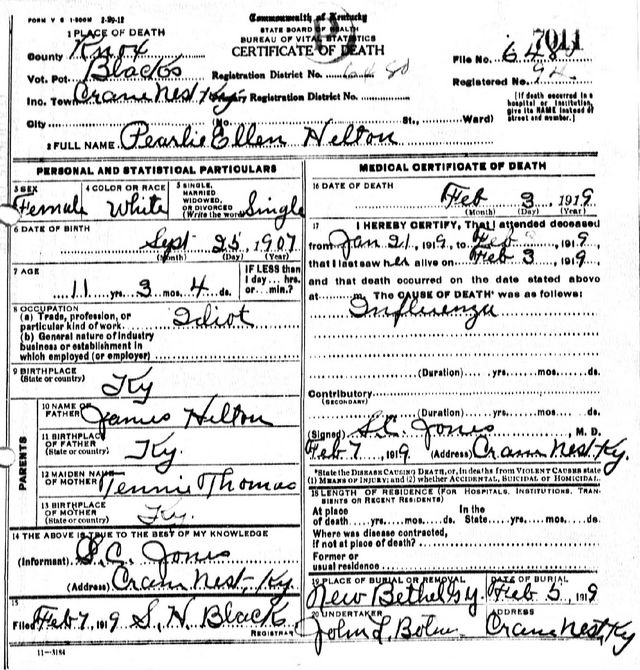 FORM V S 1-500M 2-29-12
Commonwealth of Kentucky
STATE BOARD OF HEALTH
BUREAU OF VITAL STATISTICS
CERTIFICATE OF DEATH
1 PLACE OF DEATH
County Knox
Vot. Pct. Blacks
Inc. Town Crane Nest Ky
City (No. St., Ward)
Registration District No. 6480
Primary Registration District No.
7011
File No.
Registered No. 94
[If death occurred in a hospital or institution, give its NAME instead of street and number.]
2 FULL NAME Pearlie Ellen Helton
PERSONAL AND STATISTICAL PARTICULARS
3 SEX Female
4 COLOR OR RACE White
5 SINGLE, MARRIED, WIDOWED, OR DIVORCED (Write the word) Single
6 DATE OF BIRTH
Sept 25, 1907
(Month) (Day) (Year)
7 AGE
11 yrs. 3 mos. 4 ds.
IF LESS than 1 day... hrs. or... min.?
8 OCCUPATION
(a) Trade, profession, or particular kind of work Idiot
(b) General nature of industry business or establishment in which employed (or employer)
9 BIRTHPLACE (State or country) Ky
PARENTS
10 NAME OF FATHER James Hilton
11 BIRTHPLACE OF FATHER (State or country) Ky.
12 MAIDEN NAME OF MOTHER Tennie Thomas
13 BIRTHPLACE OF MOTHER (State or country) Ky.
14 THE ABOVE IS TRUE TO THE BEST OF MY KNOWLEDGE
(Informant) S. C. Jones
(Address) Crane Nest, Ky
15
Filed Feb 7, 1919 S. H. Black
REGISTRAR
11--3184
MEDICAL CERTIFICATE OF DEATH
16 DATE OF DEATH
Feb 3, 1919
(Month) (Day) (Year)
17 I HEREBY CERTIFY, That I attended deceased
from Jan 21, 1919, to Feb 3, 1919,
that I last saw her alive on Feb 3, 1919,
and that death occurred on the date stated above
at m. The CAUSE OF DEATH* was as follows:
Influenza
(Duration) yrs. mos. ds.
Contributory
(SECONDARY)
(Duration) yrs. mos. ds.
(Signed) S.C. Jones, M. D.
Feb 7, 1919 (Address) Crane Nest Ky.
*State the DISEASE CAUSING DEATH, or, in deaths from VIOLENT CAUSES state (1) MEANS OF INJURY; and (2) whether ACCIDENTAL, SUICIDAL OR HOMICIDAL.
18 LENGTH OF RESIDENCE (FOR HOSPITALS, INSTITUTIONS, TRANSIENTS OR RECENT RESIDENTS)
At place of death yrs. mos. ds. In the State yrs. mos. ds.
Where was disease contracted, if not at place of death?
Former or usual residence
19 PLACE OF BURIAL OR REMOVAL New Bethel Ky
DATE OF BURIAL Feb 5, 1919
20 UNDERTAKER John L.
ADDRESS Crane Nest, Ky